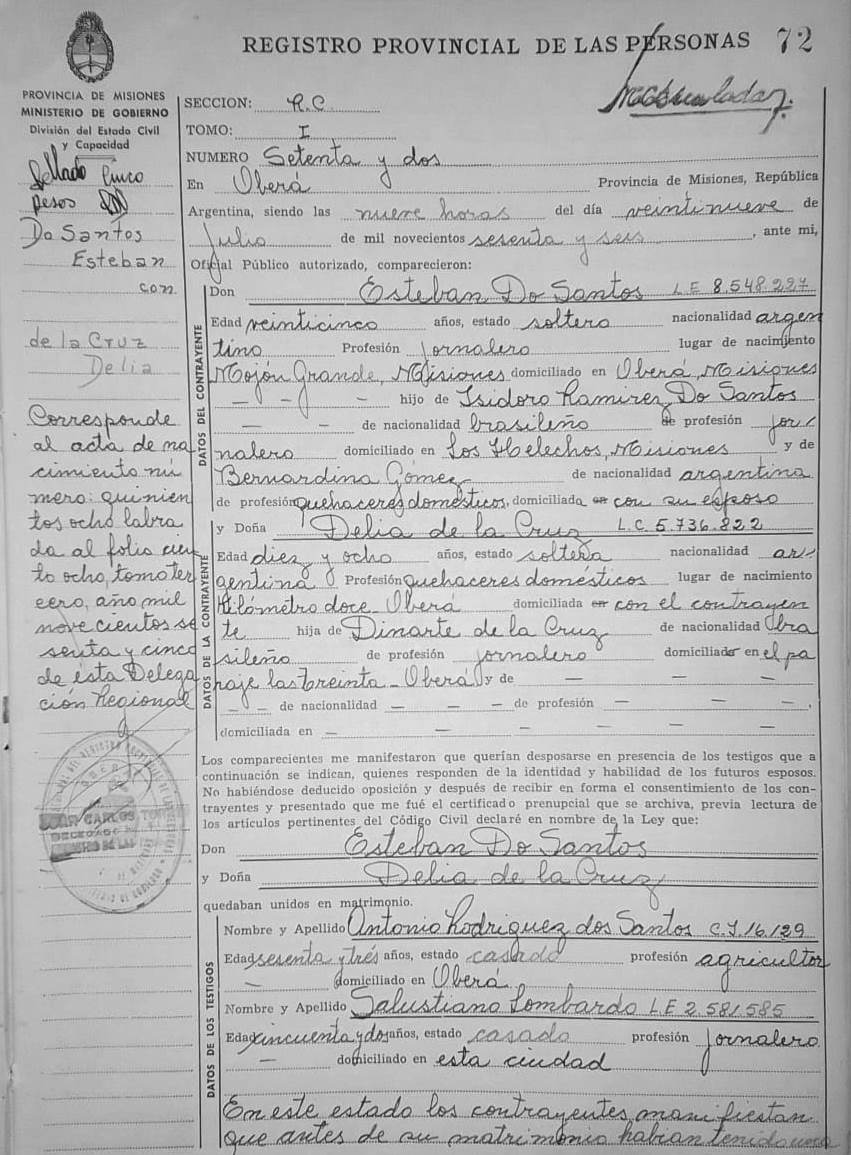 REGISTRO PROVINCIAL DE LAS PERSONAS 72
PROVINCIA DE MISIONES
MINISTERIO DE GOBIERNO
División del Estado Civil
y Capacidad
Sellado Cinco
pesos
Do Santos
Esteban
con
de la Cruz
Delia
Corresponde
al acta de na
cimiento nú
mero: quinien
tos ocho labra
da al folio cien
to ocho, tomo ter
cero, año mil
novecientos se
senta y cinco
de ésta Delega
ción Regional
SECCION: R.C.
TOMO: I
NUMERO Setenta y dos
En Oberá Provincia de Misiones, República
Argentina, siendo las nueve horas del día veintinueve de
Julio de mil novecientos sesenta y seis, ante mi,
Oficial Público autorizado, comparecieron:
DATOS DEL CONTRAYENTE
Don Esteban Do Santos L E 8.548.227
Edad veinticinco años, estado soltero nacionalidad argen
tino Profesión jornalero lugar de nacimiento
Mojón Grande, Misiones domiciliado en Oberá, Misiones
— — — hijo de Isidoro Ramirez Do Santos
— — de nacionalidad brasileño de profesión jor
nalero domiciliado en Los Helechos, Misiones y de
Bernardina Gómez de nacionalidad argentina
de profesión quehaceres domésticos, domiciliada en con su esposo
y Doña Delia de la Cruz L.C. 5.736.822
DATOS DE LA CONTRAYENTE
Edad diez y ocho años, estado soltera nacionalidad ar
gentina Profesión quehaceres domésticos lugar de nacimiento
Kilómetro doce - Oberá domiciliada en con el contrayen
te hija de Dinarte de la Cruz de nacionalidad bra
sileño de profesión jornalero domiciliado en el pa
raje las treinta - Oberá y de — — —
— — de nacionalidad — — — de profesión — — —,
domiciliada en — — — — — —
Los comparecientes me manifestaron que querían desposarse en presencia de los testigos que a
continuación se indican, quienes responden de la identidad y habilidad de los futuros esposos.
No habiéndose deducido oposición y después de recibir en forma el consentimiento de los con-
trayentes y presentado que me fué el certificado prenupcial que se archiva, previa lectura de
los artículos pertinentes del Código Civil declaré en nombre de la Ley que:
Don Esteban Do Santos
y Doña Delia de la Cruz
quedaban unidos en matrimonio.
DATOS DE LOS TESTIGOS
Nombre y Apellido Antonio Rodriguez dos Santos C.I. 16.129
Edad sesenta y trés años, estado casado profesión agricultor
— domiciliado en Oberá
Nombre y Apellido Salustiano Lombardo L.E 2.581.585
Edad cincuenta y dos años, estado casado profesión jornalero
— domiciliado en esta ciudad
En este estado los contrayentes manifiestan
que antes de su matrimonio habian tenido una